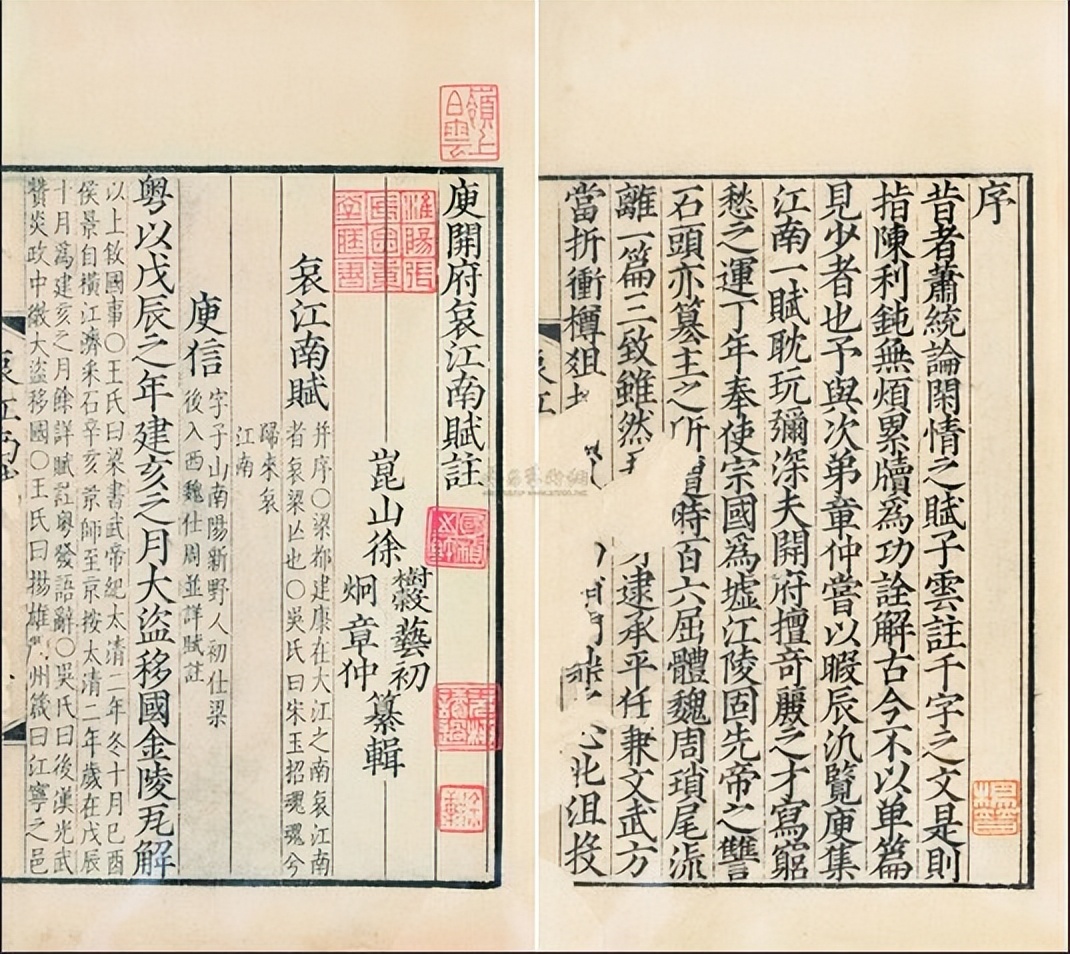 序
昔者蕭統論閑情之賦子雲註千字之文是則
指陳利鈍無煩累牘為功詮解古今不以单篇
見少者也予與次弟章仲嘗以暇辰汎覽庾集
江南一賦耽玩彌深夫開府擅奇麗之才寫窮
愁之運丁年奉使宗國為墟江陵固先帝之讐
石頭亦篡主之所 時百六屈體魏周瑣尾流
離一篇三致雖然 才逮承平任兼文武方
當折衝樽俎 北沮投
嶺上白雲
庾開府哀江南賦註
崑山徐樹穀藝初
炯章仲
纂輯
哀江南賦
并序○梁都建康在大江之南哀江南
者哀梁亡也○吳氏曰宋玉招魂魂兮
歸來哀
江南
庾信
字子山南陽新野人初仕梁
後入西魏仕周並詳賦註
粤以戊辰之年建亥之月大盜移國金陵瓦解
以上敘國事○王氏曰梁書武帝紀太清二年冬十月己酉
侯景自橫江濟采石辛亥景師至京按太清二年歲在戊辰
十月為建亥之月餘詳賦註粤發語辭○吳氏曰後漢光武
贊炎政中微大盜移國○王氏曰揚雄 州箴曰江寧之邑